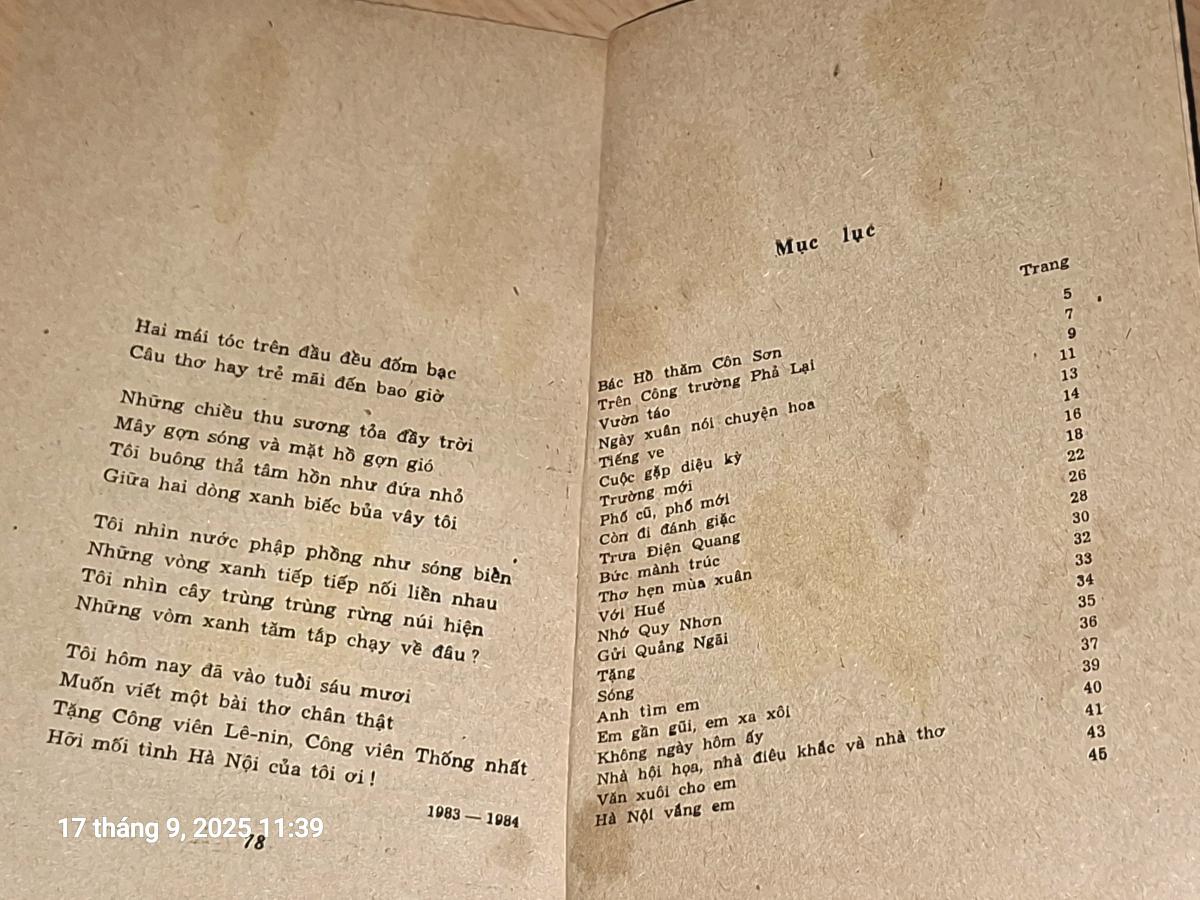 Hai mái tóc trên đầu đều đốm bạc
Câu thơ hay trẻ mãi đến bao giờ
Những chiều thu sương tỏa đầy trời
Mây gợn sóng và mặt hồ gợn gió
Tôi buông thả tâm hồn như đứa nhỏ
Giữa hai dòng xanh biếc bủa vây tôi
Tôi nhìn nước phập phồng như sóng biển
Những vòng xanh tiếp tiếp nối liền nhau
Tôi nhìn cây trùng trùng rừng núi hiện
Những vòm xanh tăm tắp chạy về đâu ?
Tôi hôm nay đã vào tuổi sáu mươi
Muốn viết một bài thơ chân thật
Tặng Công viên Lê-nin, Công viên Thống nhất
Hỡi mối tình Hà Nội của tôi ơi !
1983 — 1984
78
17 tháng 9, 2025 11:39
Mục lục
Trang
Bác Hồ thăm Côn Sơn 5
Trên Công trường Phả Lại 7
Vườn táo 9
Ngày xuân nói chuyện hoa 11
Tiếng ve 13
Cuộc gặp diệu kỳ 14
Trường mới 16
Phố cũ, phố mới 18
Còn đi đánh giặc 22
Trưa Điện Quang 26
Bức mành trúc 28
Thơ hẹn mùa xuân 30
Với Huế 32
Nhớ Quy Nhơn 33
Gửi Quảng Ngãi 34
Tặng 35
Sóng 36
Anh tìm em 37
Em gần gũi, em xa xôi 39
Không ngày hôm ấy 40
Nhà hội họa, nhà điêu khắc và nhà thơ 41
Văn xuôi cho em 43
Hà Nội vắng em 45